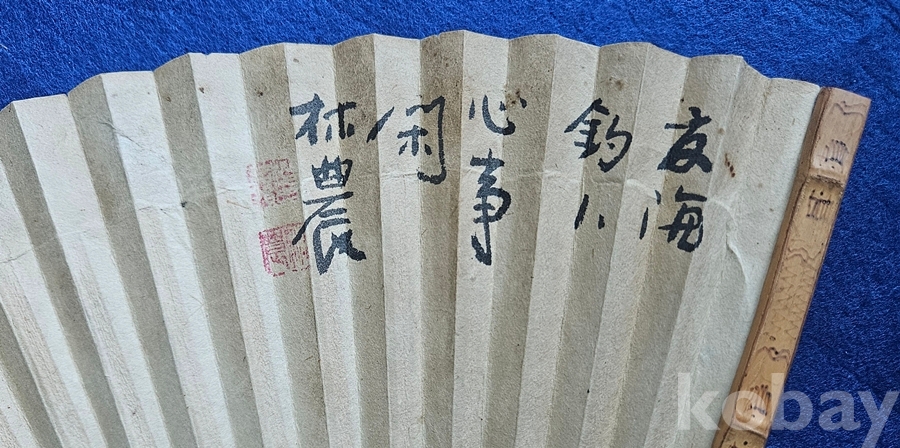 海
釣人
心事
閑
林農
kobay